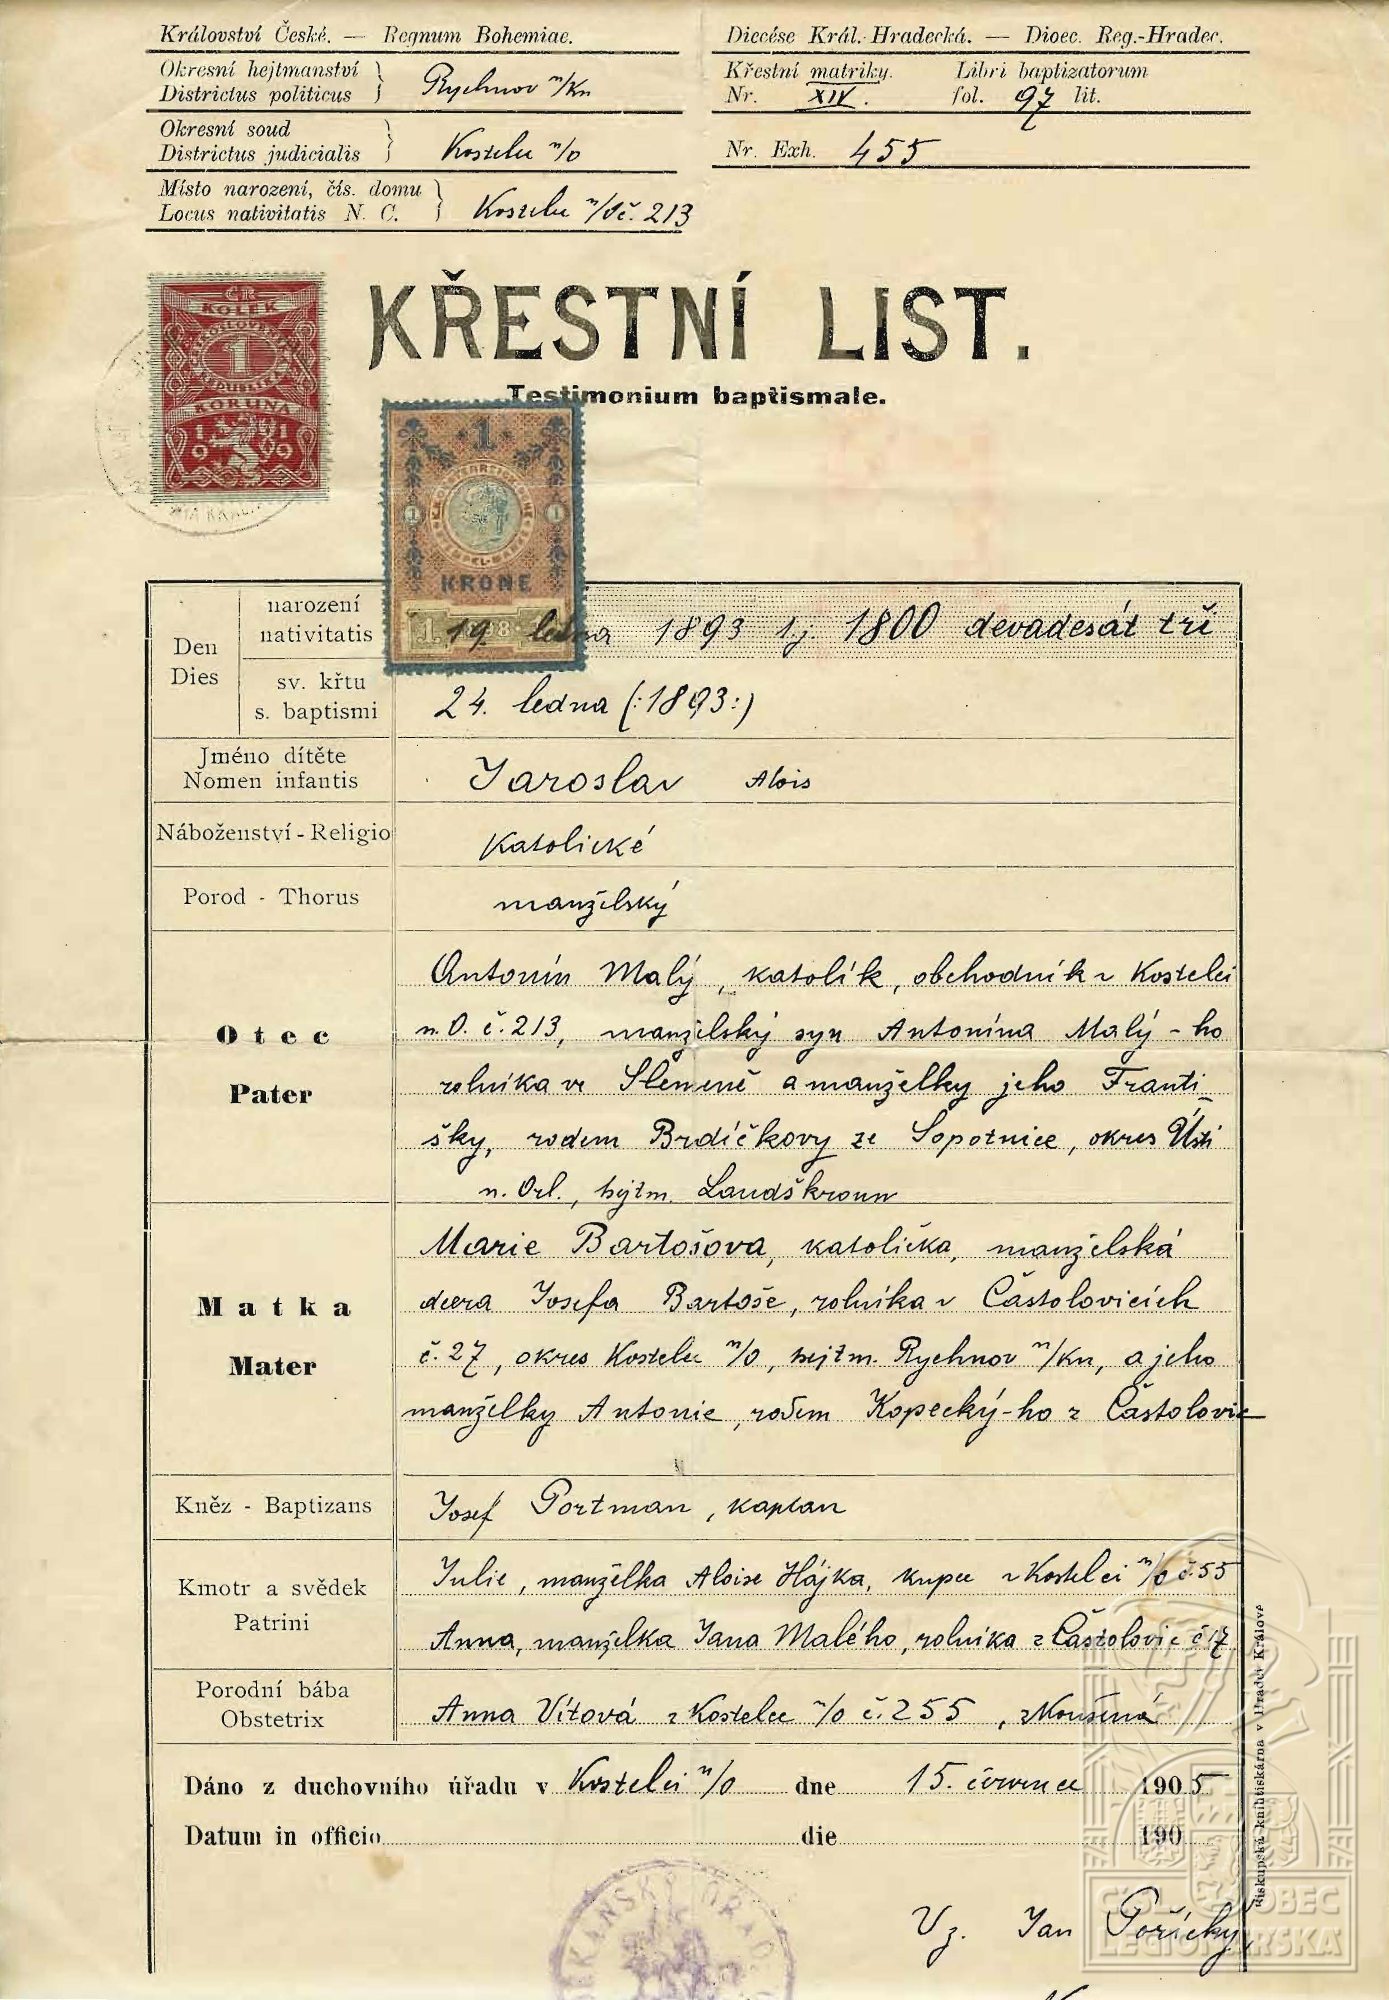 Království České. — Regnum Bohemiae.
Diecése Král.-Hradecká. — Dioec. Reg.-Hradec.
Okresní hejtmanství
Districtus politicus
Rychnov n/Kn
Křestní matriky. Libri baptizatorum
Nr. XIV. fol. 97 lit.
Okresní soud
Districtus judicialis
Kostelec n/O
Nr. Exh. 455
Místo narození, čís. domu
Locus nativitatis N. C.
Kostelec n/O č. 213
KŘESTNÍ LIST.
Testimonium baptismale.
ČR
KOLEK
1
KORUNA
1919
1
KRONE
Den
Dies
narození
nativitatis
19. ledna 1893 tj. 1800 devadesát tři
sv. křtu
s. baptismi
24. ledna (:1893:)
Jméno dítěte
Nomen infantis
Jaroslav Alois
Náboženství - Religio
katolické
Porod - Thorus
manželský
Otec
Pater
Antonín Malý, katolík, obchodník v Kostelci
n. O. č. 213, manželský syn Antonína Malý-ho
rolníka ve Slemeně a manželky jeho Franti-
šky, rodem Brdíčkovy ze Sopotnice, okres Ústí
n. Orl., hejtm. Landškroun
Matka
Mater
Marie Bartošova, katolička, manželská
dcera Josefa Bartoše, rolníka v Častolovicích
č. 27, okres Kostelec n/O, hejtm. Rychnov n/Kn, a jeho
manželky Antonie, rodem Kopecký-ho z Častolovic
Kněz - Baptizans
Josef Portman, kaplan
Kmotr a svědek
Patrini
Julie, manželka Aloise Hájka, kupce v Kostelci n/O č. 55
Anna, manželka Jana Malého, rolníka z Častolovic č 17
Porodní bába
Obstetrix
Anna Vítová z Kostelce n/O č. 255, zkoušená
Dáno z duchovního úřadu v Kostelci n/O dne 15. července 1905
Datum in officio die 190
Biskupská knihtiskárna v Hradci Králové
DĚKANSKÝ ÚŘAD
Vz. Jan Pořícký
ČSL. OBEC
LEGIONÁŘSKÁ